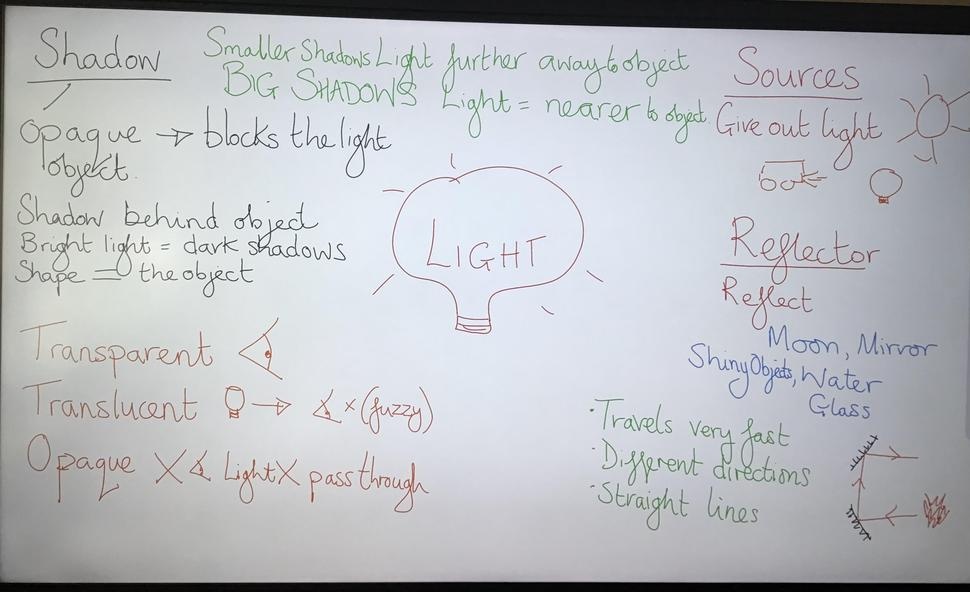 Shadow
Opaque → blocks the light
object.
Shadow behind object
Bright light = dark shadows
Shape = the object
Smaller Shadows Light further away to object
BIG SHADOWS Light = nearer to object.
Sources
Give out light
LIGHT
Reflector
Reflect
Moon, Mirror
Shiny Objects, Water
Glass
Transparent
Translucent → x (fuzzy)
Opaque X Light X pass through
·Travels very fast
·Different directions
·Straight lines